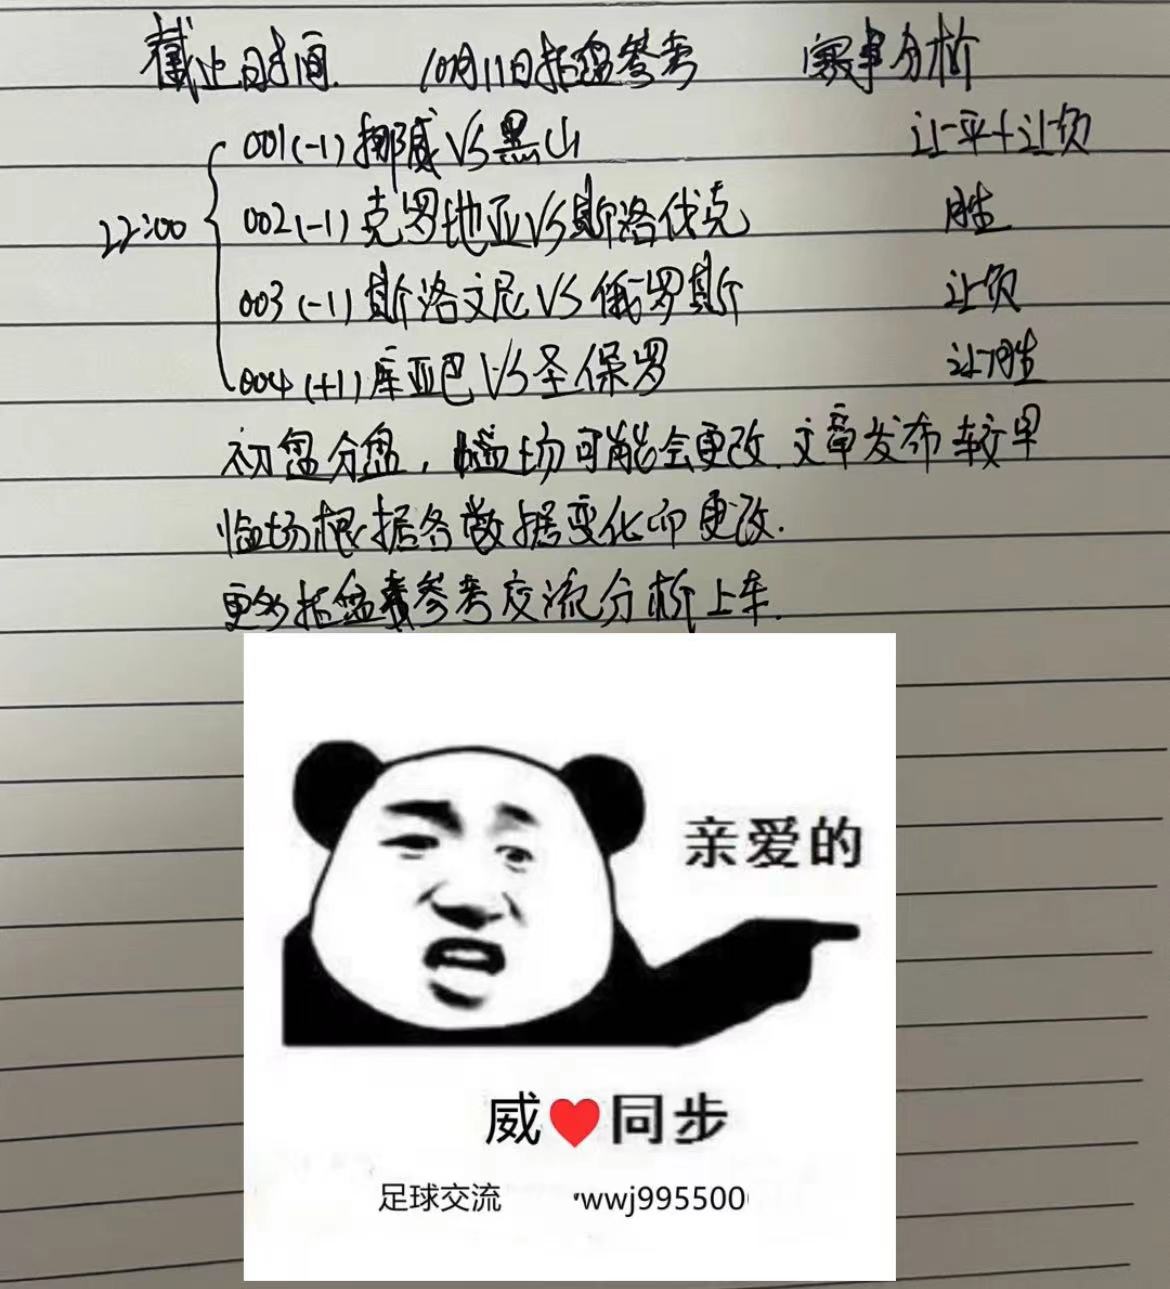 截止时间 10月11日指盘参考 赛事分析
001(-1)挪威VS黑山 让平+让负
22:00 002(-1)克罗地亚VS斯洛伐克 胜
003(-1)斯洛文尼VS俄罗斯 让负
004(+1)库亚巴VS圣保罗 让胜
初盘分盘，临场可能会更改.文章发布较早
临场根据各数据变化而更改.
更多指盘参考交流分析上车.
亲爱的
威❤同步
足球交流 wwj995500